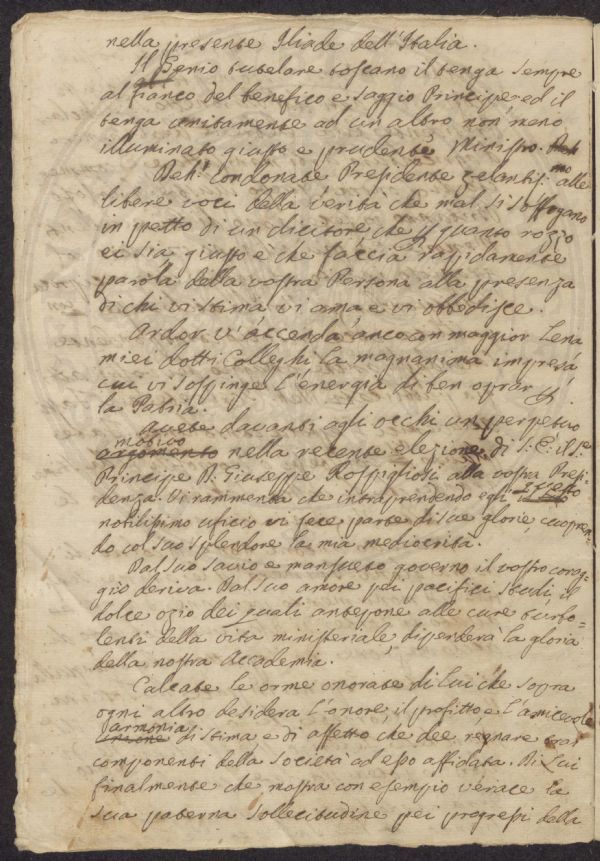 nella presente Iliade dell'Italia.
Il Genio tutelare toscano il tenga sempre
al fianco del benefico e saggio Principe ed il
tenga unitamente ad un altro non meno
illuminato giusto e prudente Ministro.
Deh! condonate Presidente zelantiss:mo alle
libere voci della verità che mal si soffogano
in petto di un dicitore che quanto rozzo
ei sia giusto è che faccia rapidamente
parola della vostra Persona alla presenza
di chi vi stima vi ama e vi obbedisce.
Ardor v'accenda anco con maggior Lena
miei dotti Colleghi la magnanima impresa
cui vi sospinge l'energia di ben oprar p
la Patria.
Avete davanti agli occhi un perpetuo
argomento motivo nella recente elezione di S. E. il S.e
Principe D. Giuseppe Rospigliosi alla vostra Presi-
denza. Vi rammenta che intraprendendo egli questo
nobilissimo uficio vi fece parte di sue glorie, cuopren-
do col suo splendore la mia mediocrità.
Dal suo savio e mansueto governo il vostro corag-
gio deriva. Dal suo amore pei pacifici studi, il
dolce ozio dei quali antepone alle cure turbo-
lenti della vita ministeriale, dipenderà la gloria
della nostra Accademia.
Calcate le orme onorate di Lui che sopra
ogni altro desidera l'onore, il profitto, e l'amicevole
unione armonia di stima, e di affetto che dee regnare tra i
componenti della società ad esso affidata. Di Lui
finalmente che mostra con esempio verace la
sua paterna sollecitudine pei progressi della